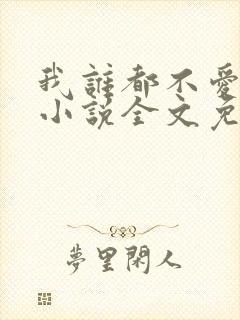 我誰都不愛
小說全文免
夢里閑人